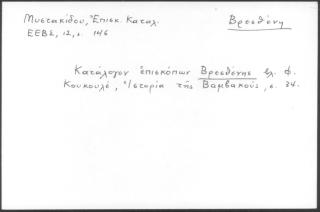 Μυστακίδου, Ἐπισκ. Καταλ.
Βρεσθένη
ΕΕΒΣ, 12, σ. 146
Κατάλογον ἐπισκόπων Βρεσθένης βλ. Φ.
Κουκουλέ, Ἱστορία τῆς Βαμβακοῦς, σ. 34.